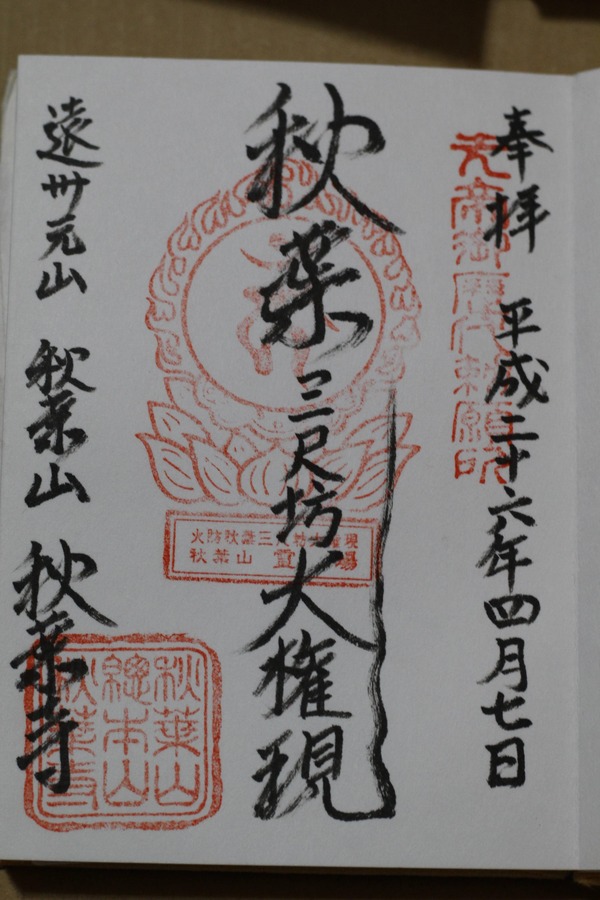 奉拝 平成二十六年四月七日
秋葉三尺坊大権現
火防秋葉三尺坊大権現
秋葉山 霊場
遠州元山 秋葉山 秋葉寺
秋葉山
總本山
秋葉寺